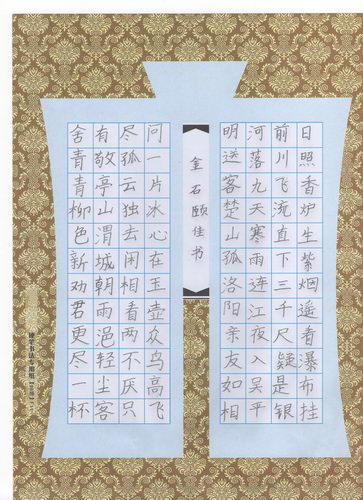 日照香炉生紫烟遥看瀑布挂
前川飞流直下三千尺疑是银
河落九天寒雨连江夜入吴平
明送客楚山孤洛阳亲友如相
金石颐佳书
问一片冰心在玉壶众鸟高飞
尽孤云独去闲相看两不厌只
有敬亭山渭城朝雨浥轻尘客
舍青青柳色新劝君更尽一杯
硬笔书法专用纸